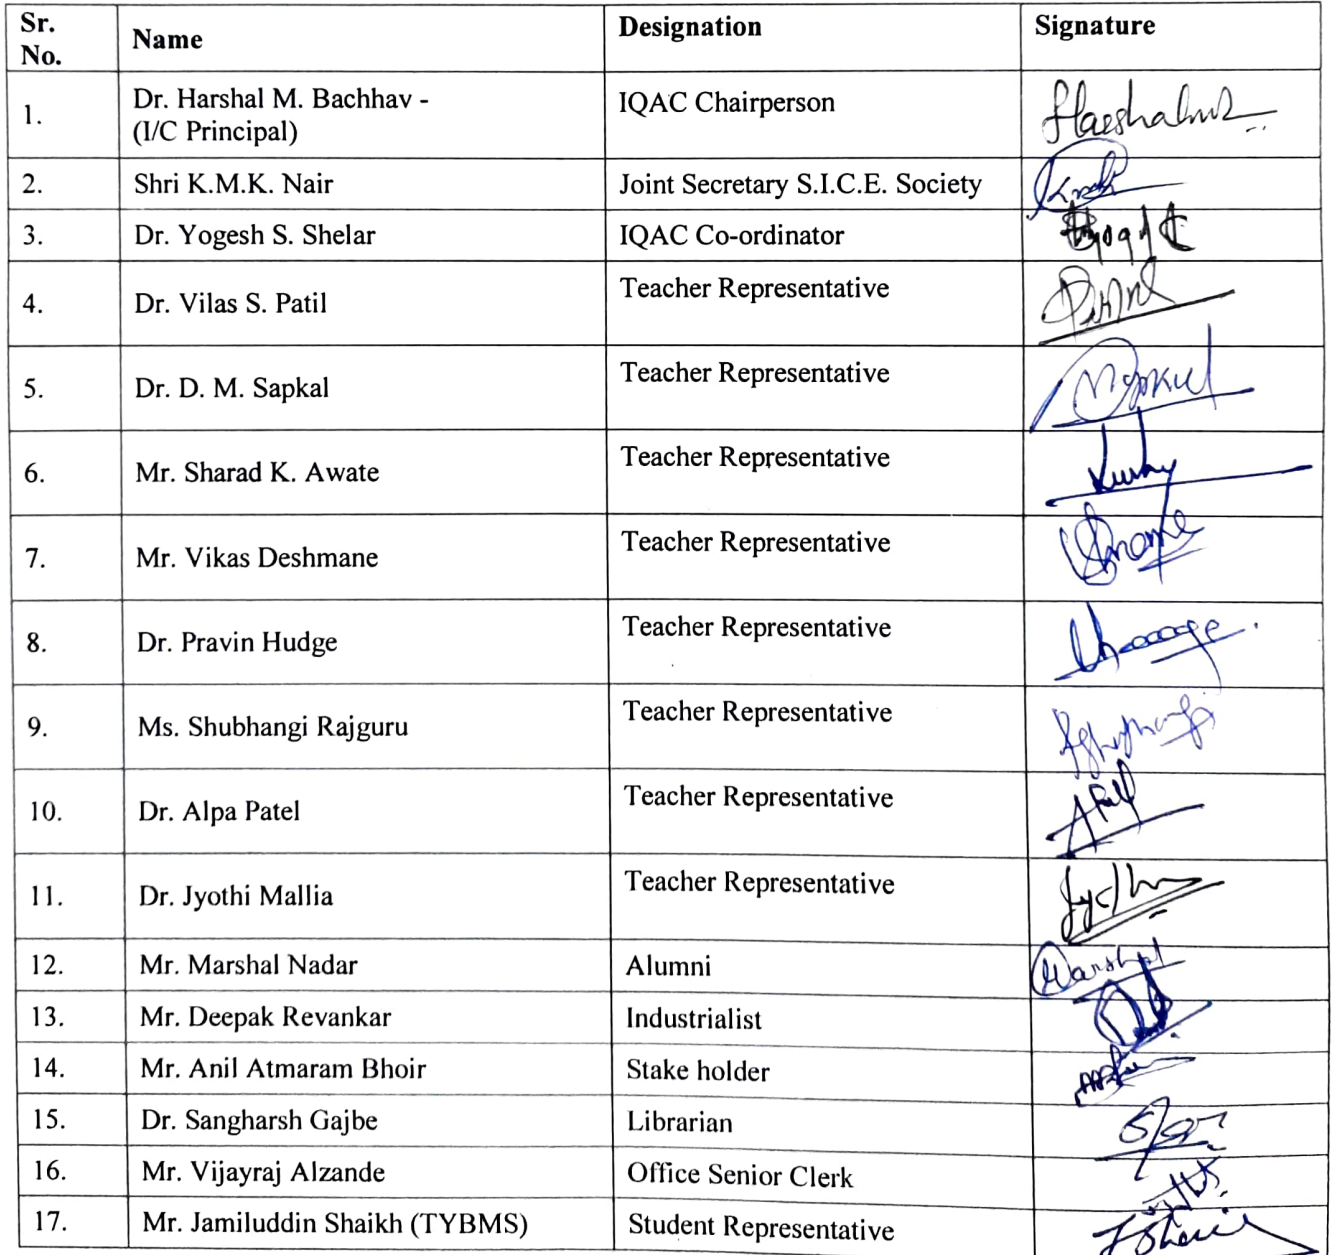 Sr. No. Name Designation Signature
1. Dr. Harshal M. Bachhav - IQAC Chairperson
(I/C Principal)
2. Shri K.M.K. Nair Joint Secretary S.I.C.E. Society
3. Dr. Yogesh S. Shelar IQAC Co-ordinator
4. Dr. Vilas S. Patil Teacher Representative
5. Dr. D. M. Sapkal Teacher Representative
6. Mr. Sharad K. Awate Teacher Representative
7. Mr. Vikas Deshmane Teacher Representative
8. Dr. Pravin Hudge Teacher Representative
9. Ms. Shubhangi Rajguru Teacher Representative
10. Dr. Alpa Patel Teacher Representative
11. Dr. Jyothi Mallia Teacher Representative
12. Mr. Marshal Nadar Alumni
13. Mr. Deepak Revankar Industrialist
14. Mr. Anil Atmaram Bhoir Stake holder
15. Dr. Sangharsh Gajbe Librarian
16. Mr. Vijayraj Alzande Office Senior Clerk
17. Mr. Jamiluddin Shaikh (TYBMS) Student Representative